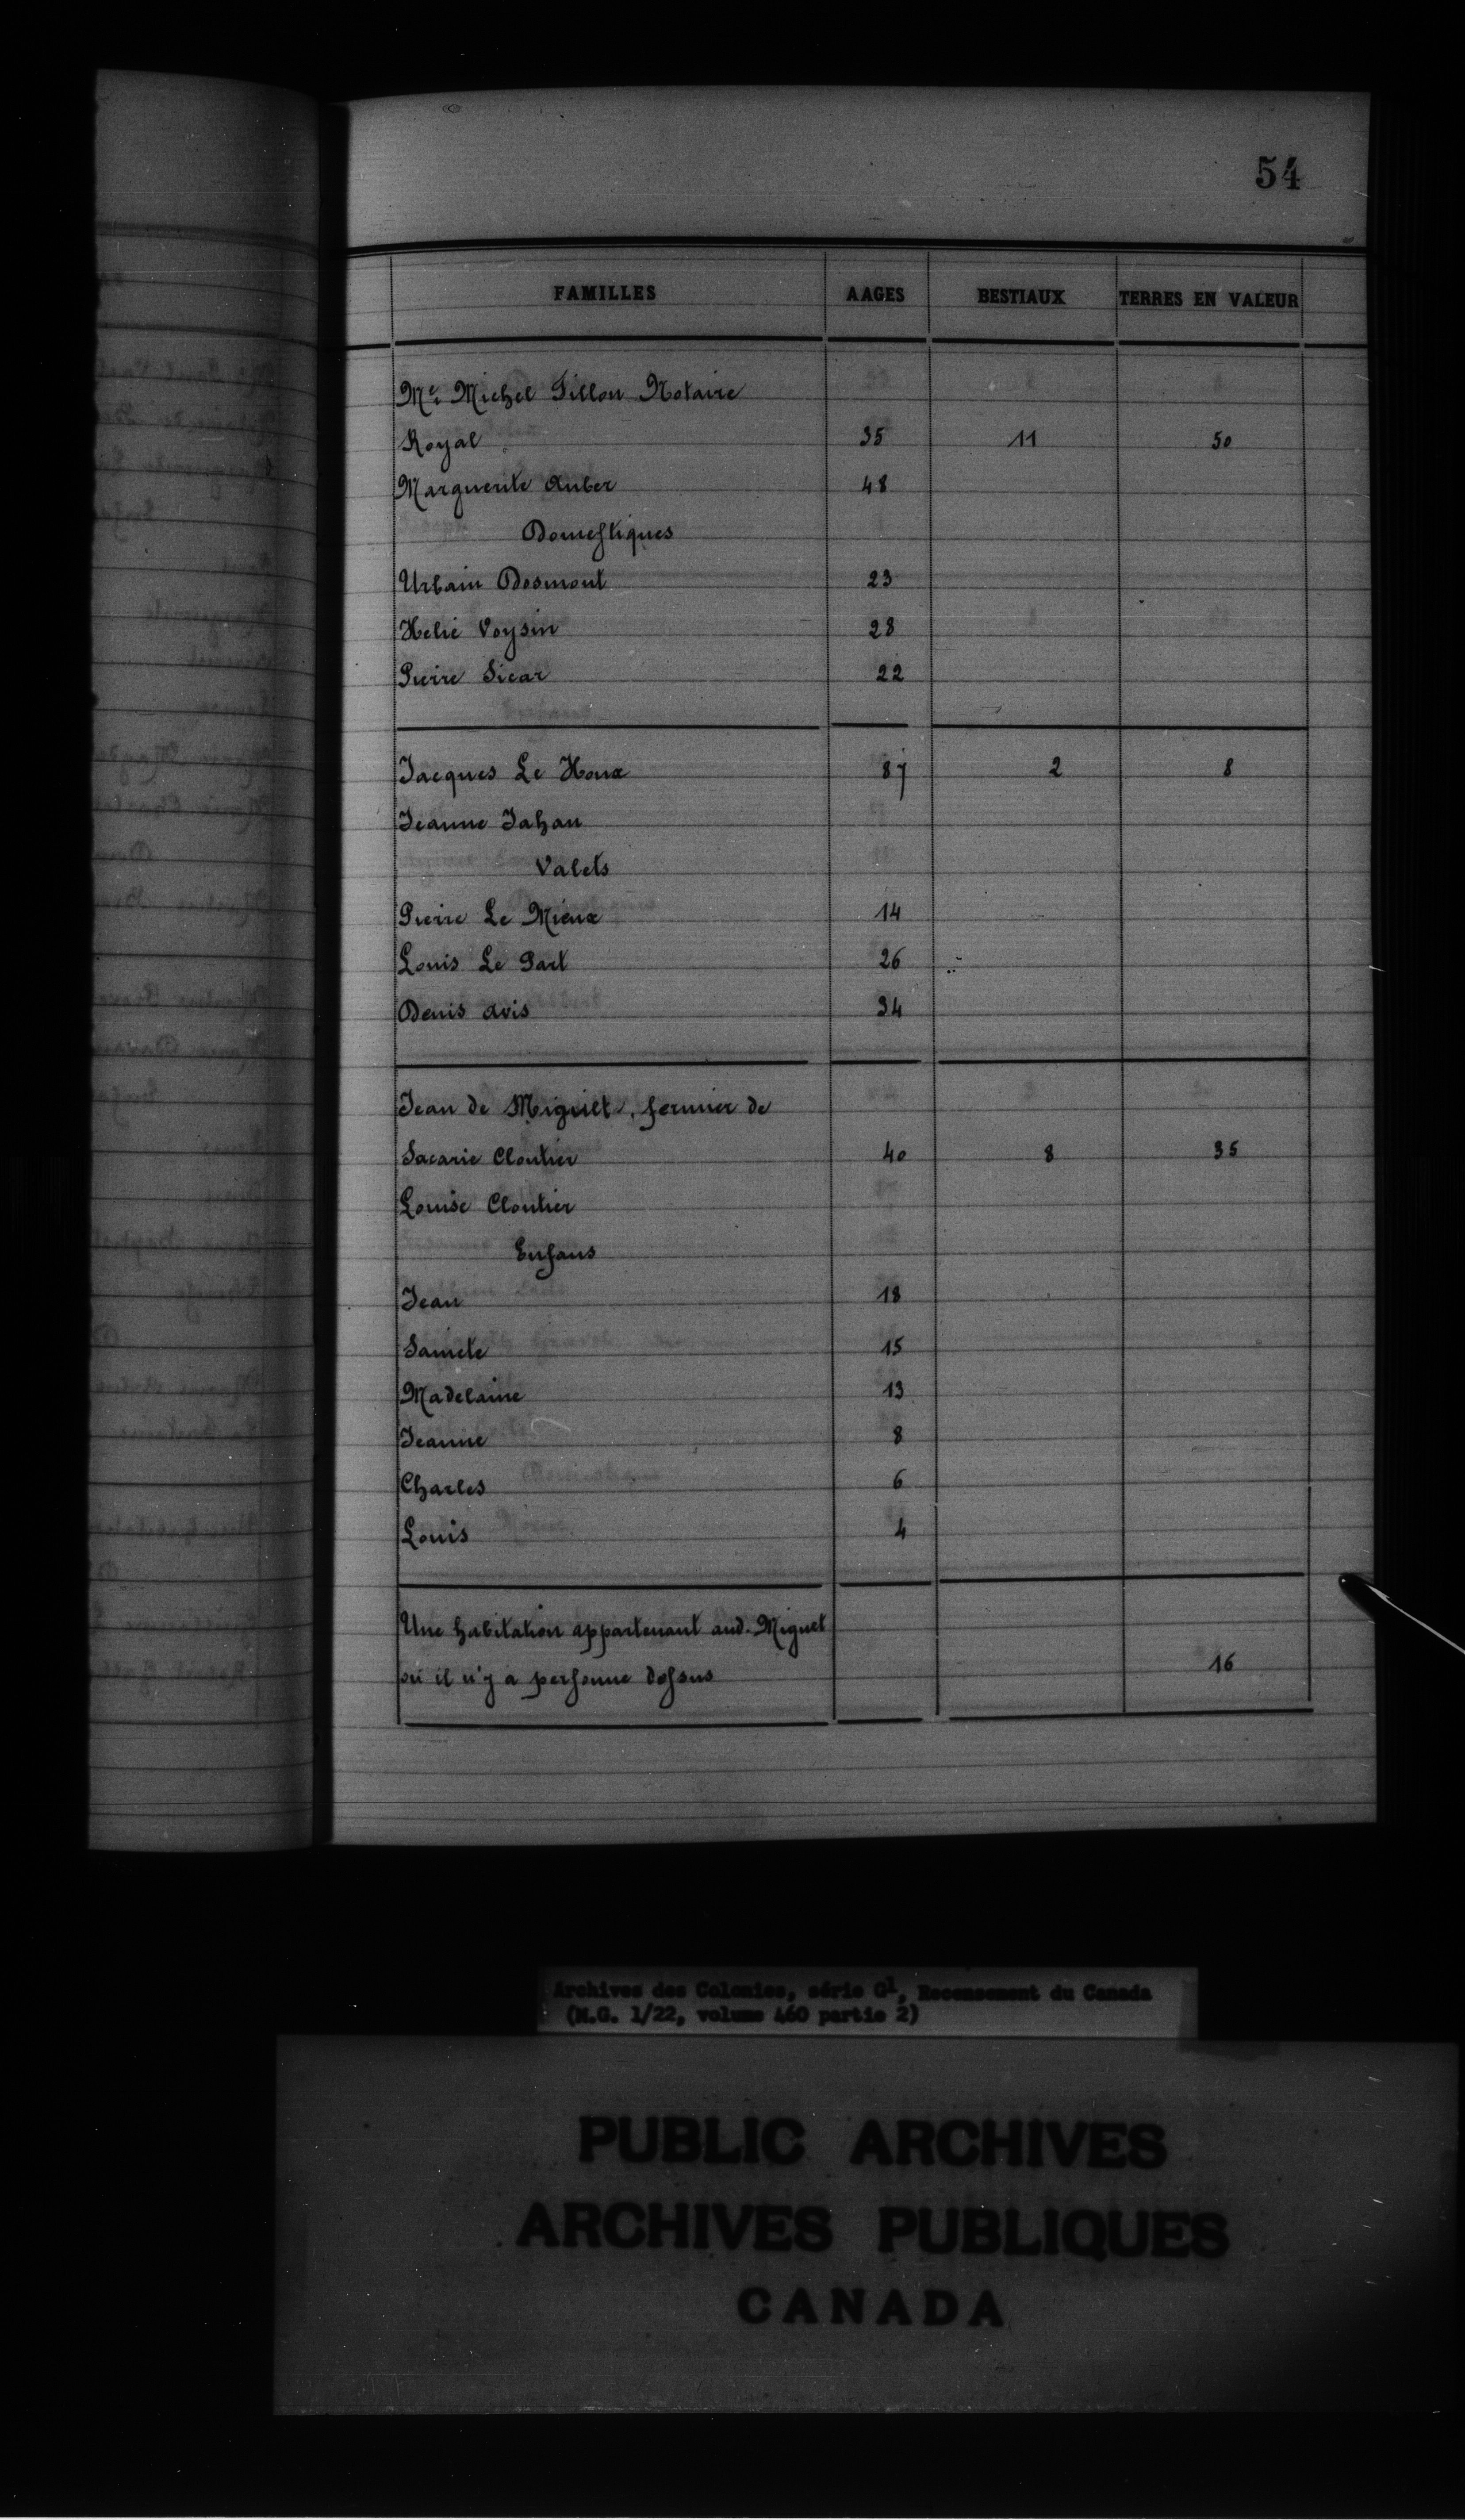 54
FAMILLES AAGES BESTIAUX TERRES EN VALEUR
Me. Michel Fillon Notaire
Royal 35 11 50
Marguerite Auber 48
Domestiques
Urbain Dosmont 23
Helie Voysin 28
Pierre Sicar 22
Jacques Le Houx 87 2 8
Jeanne Jahan
Valets
Pierre Le Mieux 14
Louis Le Part 26
Denis avis 34
Jean de Miguiet, fermier de
Sacarie Cloutier 40 8 35
Louise Cloutier
Enfans
Jean 18
Sainete 15
Madelaine 13
Jeanne 8
Charles 6
Louis 4
Une habitation appartenant aud. Miguet
où il n'y a personne dessus 16
Archives des Colonies, série G1, Recensement du Canada
(M.G. 1/22, volume 460 partie 2)
PUBLIC ARCHIVES
ARCHIVES PUBLIQUES
CANADA